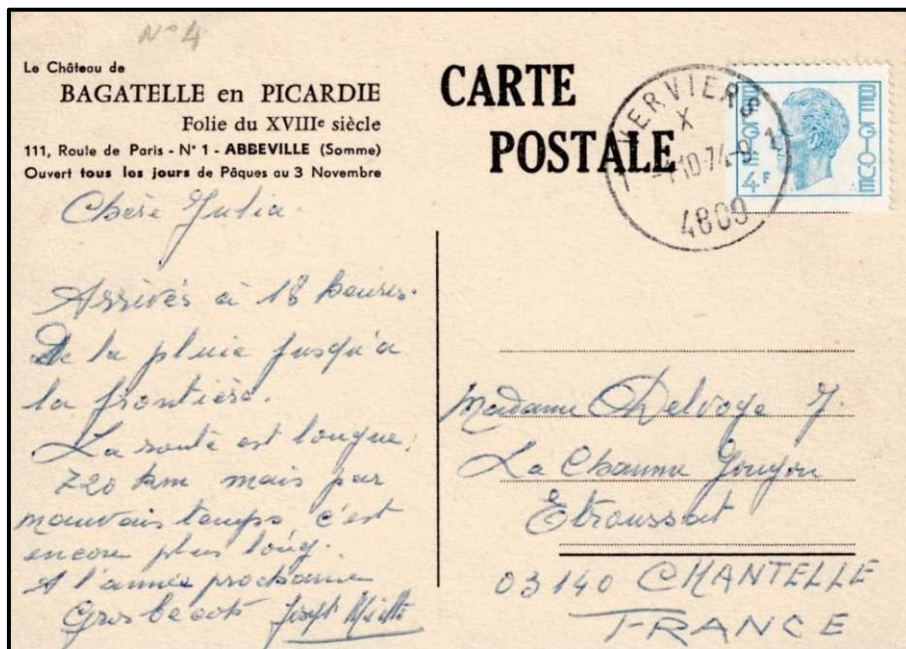 N°4
Le Château de
BAGATELLE en PICARDIE
Folie du XVIIIe siècle
111, Route de Paris - N° 1 - ABBEVILLE (Somme)
Ouvert tous les jours de Pâques au 3 Novembre
CARTE
POSTALE
VERVIERS
X
1 -7.10.74-9 1
4800
BELGIE
BELGIQUE
4F
Chère Julia.
Arrivés à 18 heures.
De la pluie jusqu'à
la frontière.
La route est longue
720 km mais par
mauvais temps, c'est
encore plus long.
A l'année prochaine
Gros becots Joseph
Madame Delvoge J.
La Chaume Goujon
Etroussat
03140 CHANTELLE
FRANCE